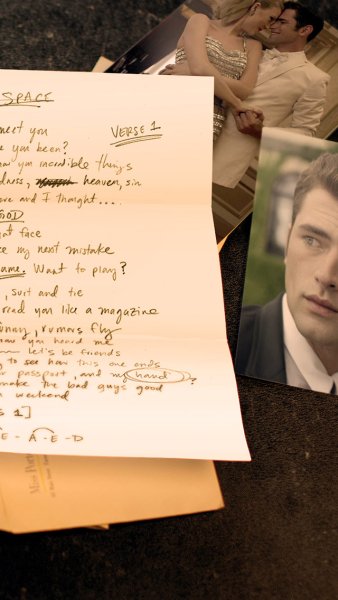 SPACE
meet you
VERSE 1
you been?
you incredible things
heaven, sin
and I thought....
face
my next mistake
Want to play?
, suit and tie
read you like a magazine
rumors fly
you heard me
let's be friends
to see how this one ends
passport, and my hand?
make the bad guys good
weekend
1]
E - A - E - D
Miss